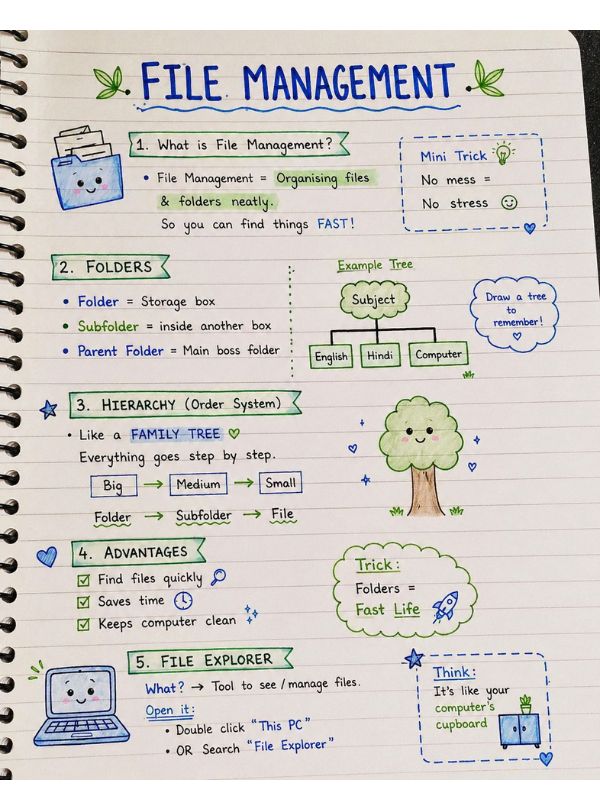 FILE MANAGEMENT
1. What is File Management?
• File Management = Organising files
& folders neatly.
So you can find things FAST!
Mini Trick
No mess =
No stress ☺
2. FOLDERS
• Folder = Storage box
• Subfolder = inside another box
• Parent Folder = Main boss folder
Example Tree
Subject
English Hindi Computer
Draw a tree
to
remember!
3. HIERARCHY (Order System)
• Like a FAMILY TREE
Everything goes step by step.
Big → Medium → Small
Folder → Subfolder → File
4. ADVANTAGES
☑ Find files quickly
☑ Saves time
☑ Keeps computer clean
Trick:
Folders =
Fast Life
5. FILE EXPLORER
What? → Tool to see/manage files.
Open it:
• Double click "This PC"
• OR Search "File Explorer"
Think:
It's like your
computer's
cupboard